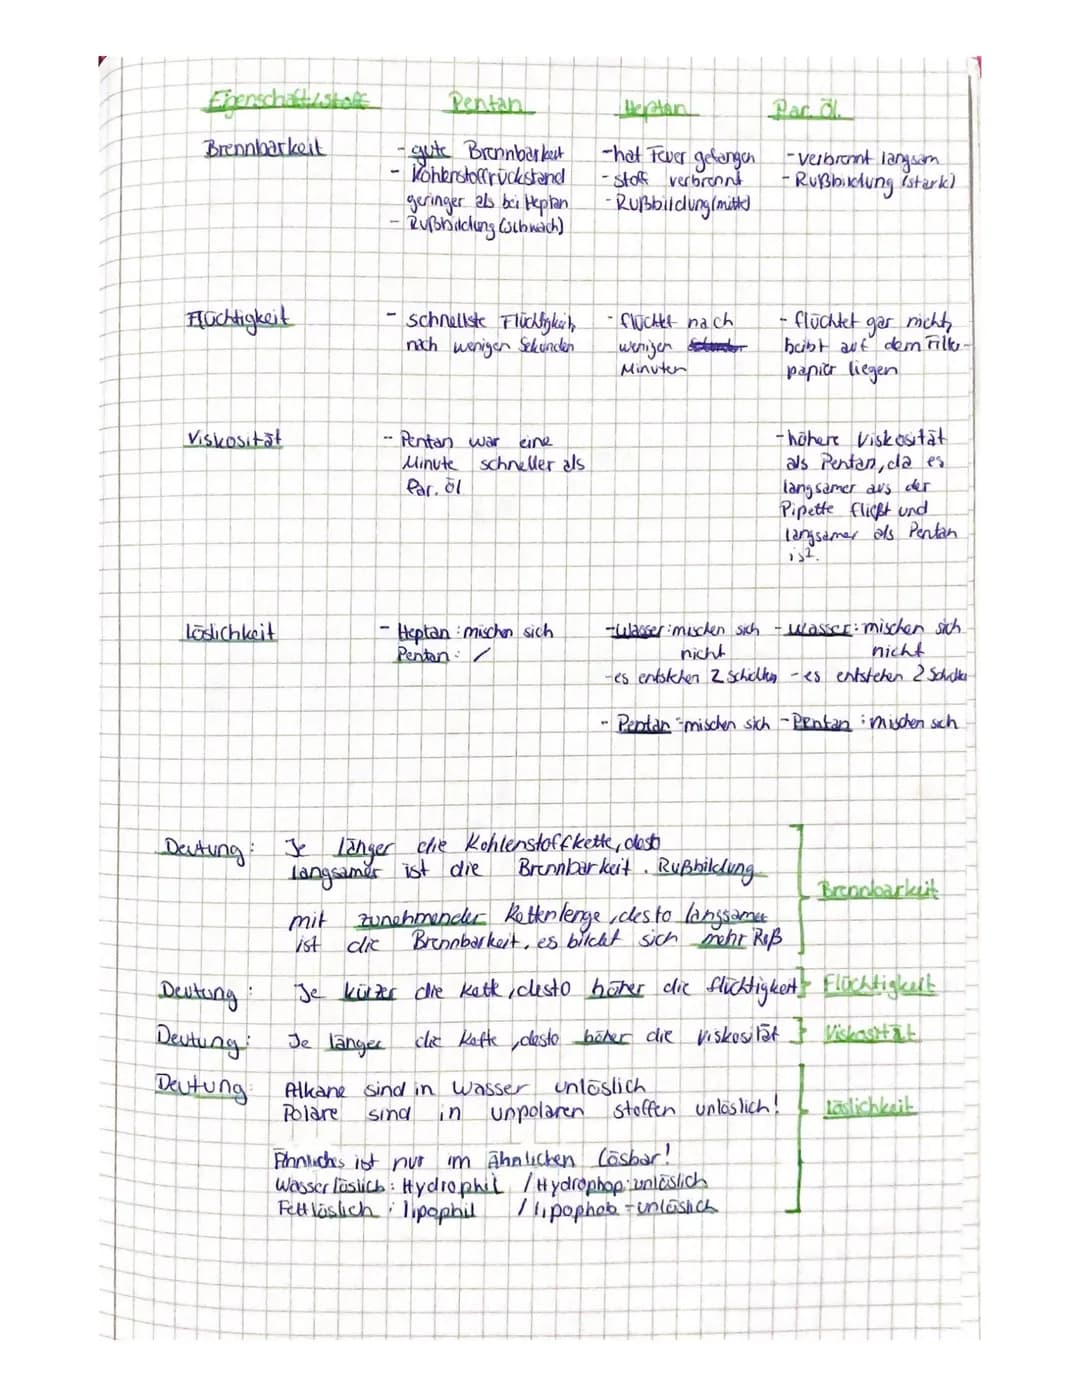 Eigenschaft/Stoff Pentan Heptan Par. Öl.
Brennbarkeit
- gute Brennbarkeit
- Kohlenstoffrückstand
geringer als bei Heptan
- Rußbildung (schwach)
- hat Feuer gefangen
- Stoff verbrennt
- Rußbildung (mittel)
- verbrennt langsam
- Rußbildung (stark)
Flüchtigkeit
- schnellste Flüchtigkeit,
nach wenigen Sekunden
- flüchtet nach
wenigen
Minuten
- flüchtet gar nicht,
beibt auf dem Filter-
papier liegen
Viskosität
- Pentan war eine
Minute schneller als
Par. Öl
- höhere Viskosität
als Pentan, da es
langsamer aus der
Pipette fließt und
langsamer als Pentan
ist.
Löslichkeit
- Heptan : mischen sich
Pentan : /
- Wasser : mischen sich
nicht
- es entstehen 2 Schichten
- Pentan - mischen sich
- Wasser : mischen sich
nicht
- es entstehen 2
- Pentan : mischen sich
Deutung : Je länger die Kohlenstoffkette, desto
langsamer ist die Brennbarkeit. Rußbildung
mit zunehmender Kettenlenge, desto langsamer
ist die Brennbarkeit, es bildet sich mehr Ruß
Brennbarkeit
Deutung : Je kürzer die Kette, desto höher die flüchtigkeit Flüchtigkeit
Deutung : Je länger die Kette, desto höher die Viskosität Viskosität
Deutung : Alkane sind in Wasser unlöslich
Polare sind in unpolaren Stoffen unlöslich!
Löslichkeit
Ähnliches ist nur im Ähnlichen lösbar!
Wasserlöslich : Hydrophil / Hydrophop : unlöslich
Fettlöslich : lipophil / lipophob - unlöslich